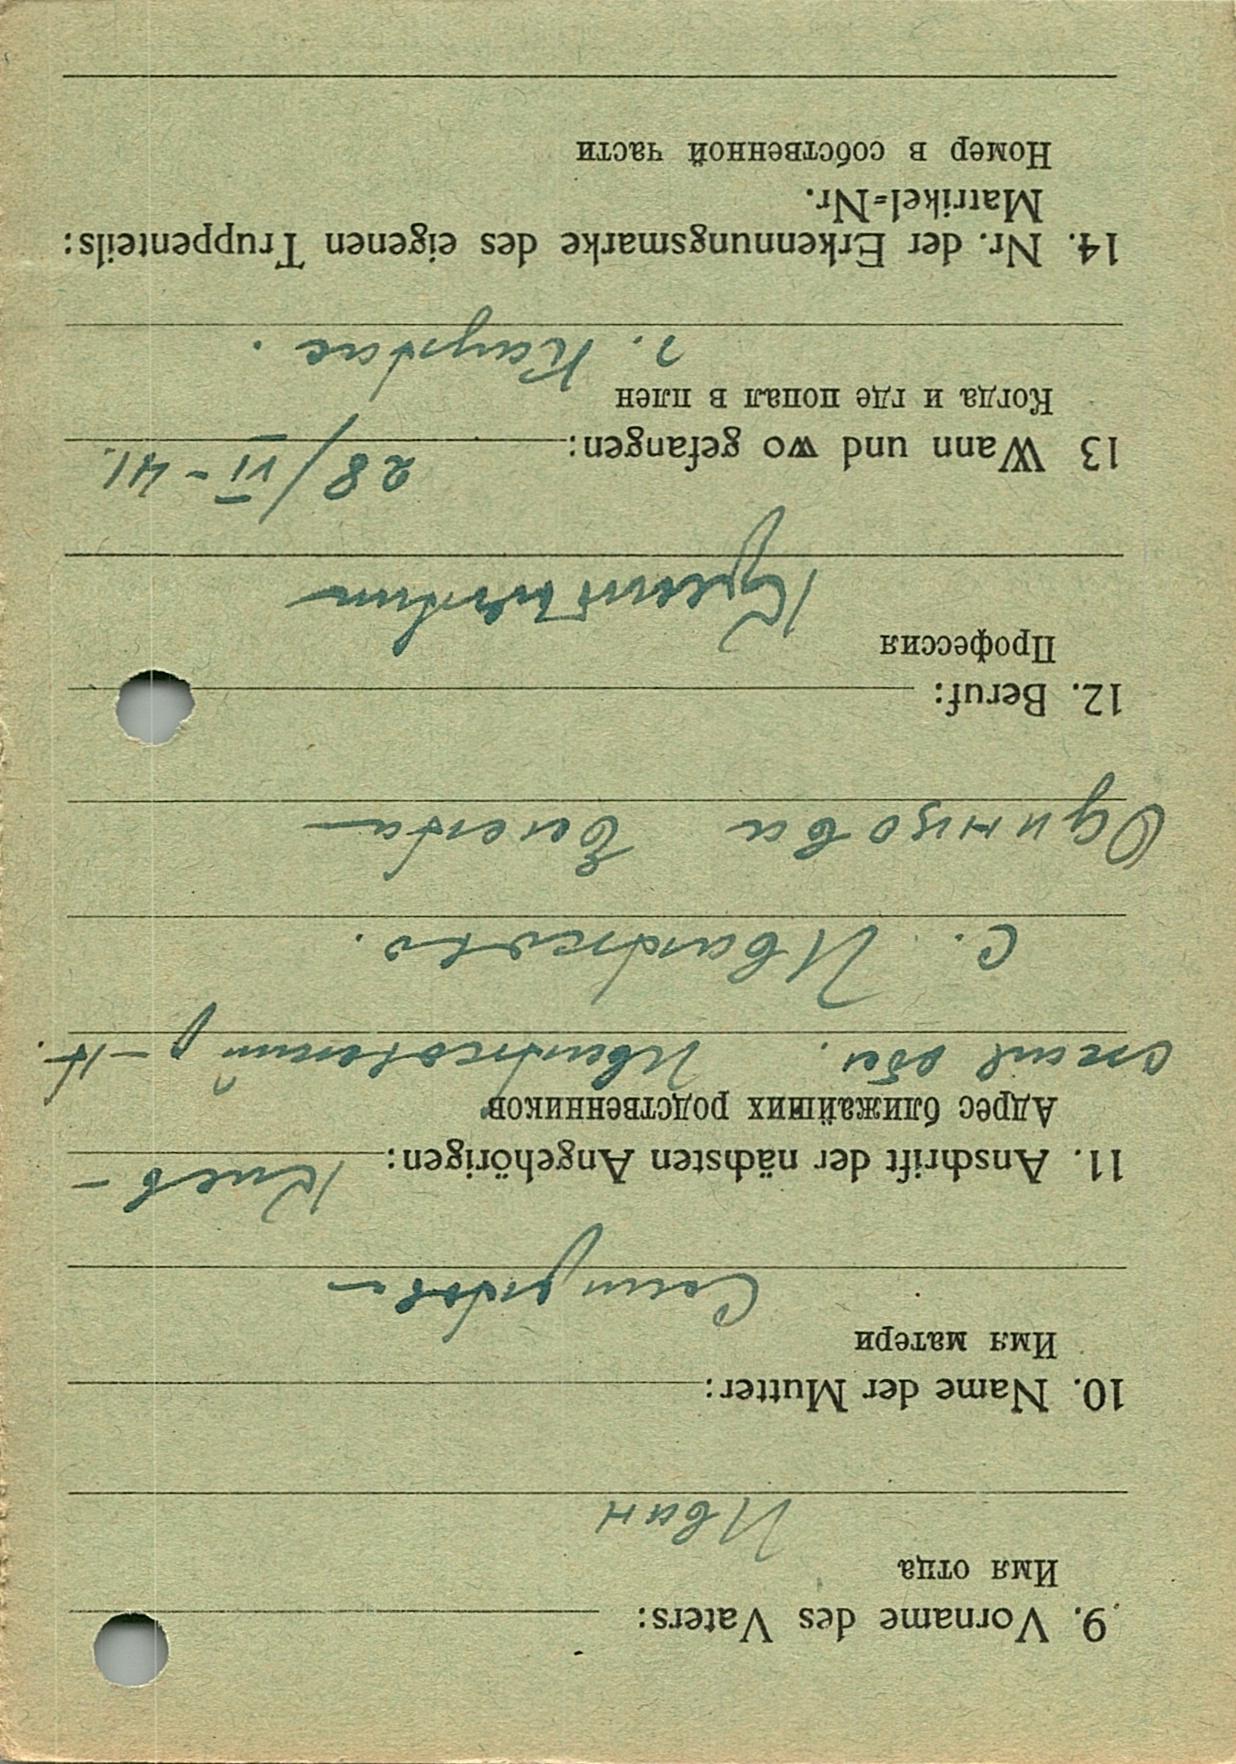 9. Vorname des Vaters:
Имя отца
Иван
10. Name der Mutter:
Имя матери
11. Anschrift der nächsten Angehörigen: Киев-
Адрес ближайших родственников
ская обл. Иванковский р-н.
с. Иванково.
Одинцова Елена
12. Beruf:
Профессия
13 Wann und wo gefangen: 28/VI-41.
Когда и где попал в плен
г. Каунас.
14. Nr. der Erkennungsmarke des eigenen Truppenteils:
Matrikel=Nr.
Номер в собственной части